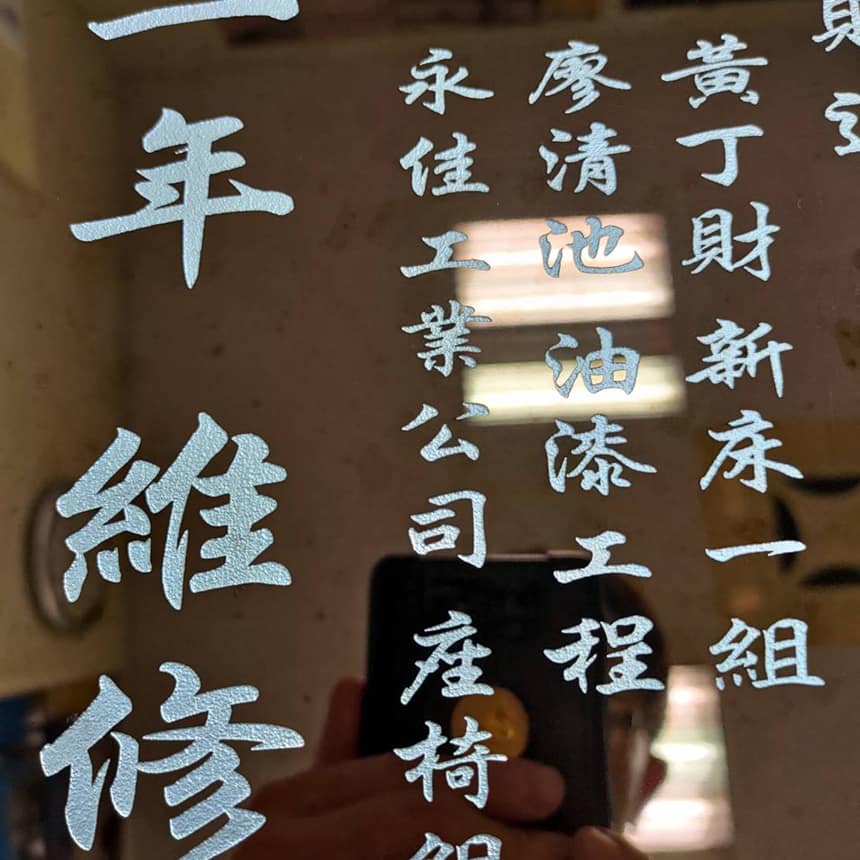 黃丁財 新床一組
廖清池 油漆工程
永佳工業公司 座椅組
一年 維修